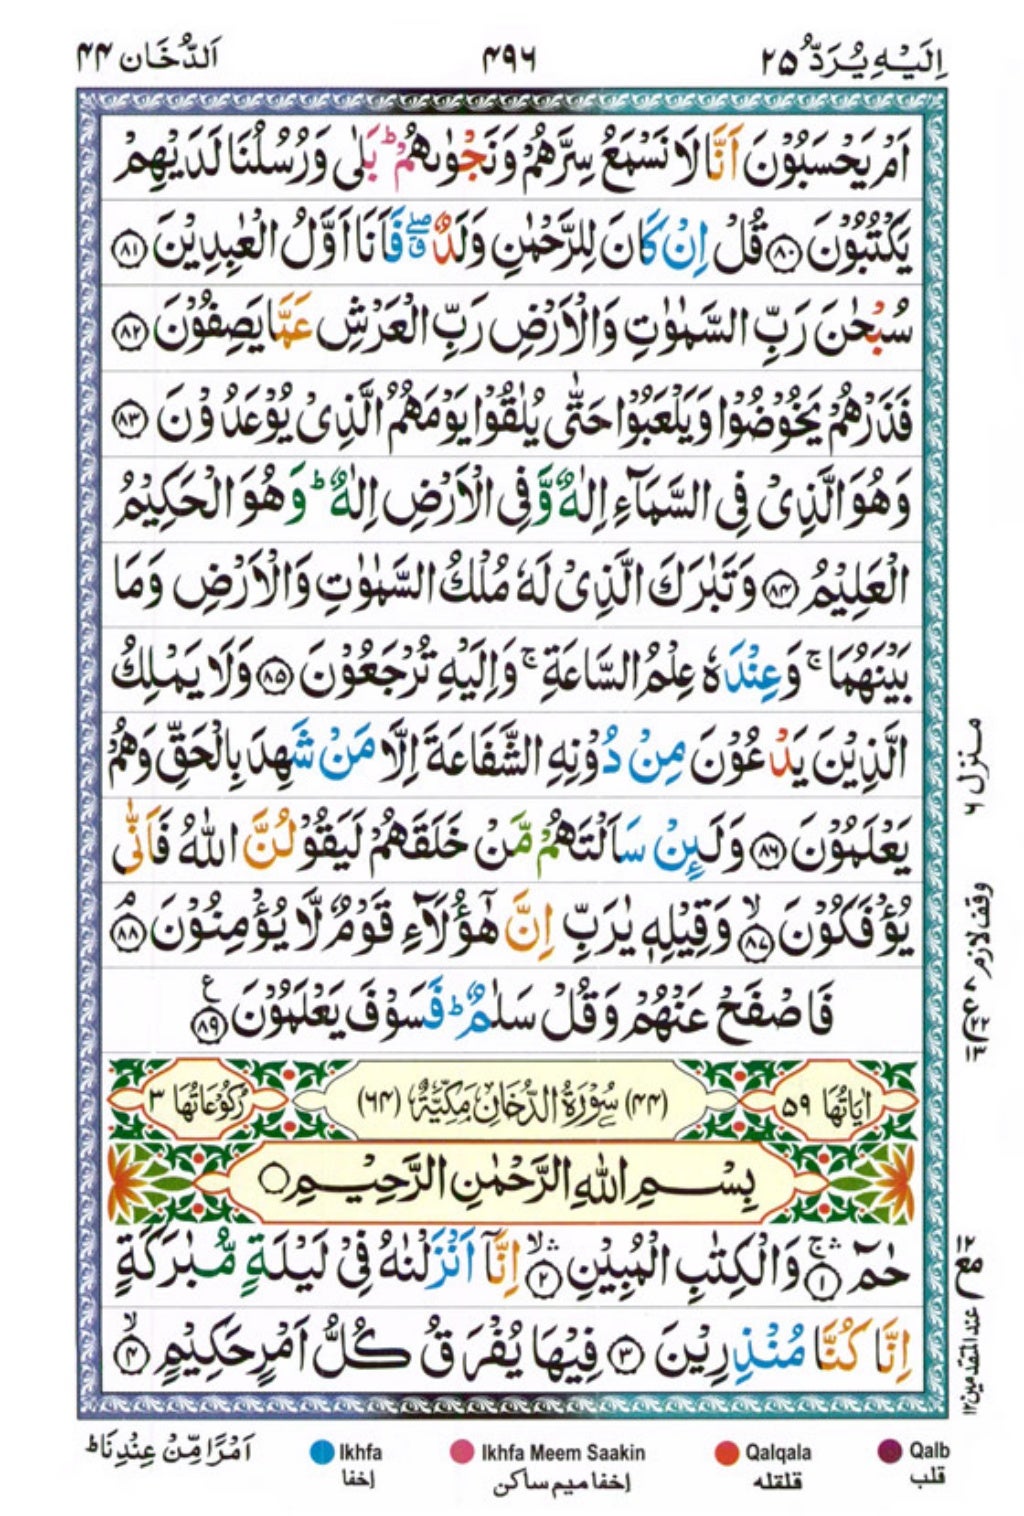 اِلَیْهِ یُرَدُّ ۲۵
۴۹۶
اَلدُّخَان ۴۴
اَمْ یَحْسَبُوْنَ اَنَّا لَا نَسْمَعُ سِرَّهُمْ وَنَجْوٰىهُمْ ؕ بَلٰی وَرُسُلُنَا لَدَیْهِمْ
یَكْتُبُوْنَ ﴿۸۰﴾ قُلْ اِنْ كَانَ لِلرَّحْمٰنِ وَلَدٌ ۖق فَاَنَا اَوَّلُ الْعٰبِدِیْنَ ﴿۸۱﴾
سُبْحٰنَ رَبِّ السَّمٰوٰتِ وَالْاَرْضِ رَبِّ الْعَرْشِ عَمَّا یَصِفُوْنَ ﴿۸۲﴾
فَذَرْهُمْ یَخُوْضُوْا وَیَلْعَبُوْا حَتّٰی یُلٰقُوْا یَوْمَهُمُ الَّذِیْ یُوْعَدُوْنَ ﴿۸۳﴾
وَهُوَ الَّذِیْ فِی السَّمَآءِ اِلٰهٌ وَّفِی الْاَرْضِ اِلٰهٌ ؕ وَهُوَ الْحَكِیْمُ
الْعَلِیْمُ ﴿۸۴﴾ وَتَبٰرَكَ الَّذِیْ لَهٗ مُلْكُ السَّمٰوٰتِ وَالْاَرْضِ وَمَا
بَیْنَهُمَا ۚ وَعِنْدَهٗ عِلْمُ السَّاعَةِ ۚ وَاِلَیْهِ تُرْجَعُوْنَ ﴿۸۵﴾ وَلَا یَمْلِكُ
الَّذِیْنَ یَدْعُوْنَ مِنْ دُوْنِهِ الشَّفَاعَةَ اِلَّا مَنْ شَهِدَ بِالْحَقِّ وَهُمْ
یَعْلَمُوْنَ ﴿۸۶﴾ وَلَىِٕنْ سَاَلْتَهُمْ مَّنْ خَلَقَهُمْ لَیَقُوْلُنَّ اللّٰهُ فَاَنّٰی
یُؤْفَكُوْنَ ۙ﴿۸۷﴾ وَقِیْلِهٖ یٰرَبِّ اِنَّ هٰۤؤُلَآءِ قَوْمٌ لَّا یُؤْمِنُوْنَ ۘ﴿۸۸﴾
فَاصْفَحْ عَنْهُمْ وَقُلْ سَلٰمٌ ؕ فَسَوْفَ یَعْلَمُوْنَ ﴿۸۹﴾ ع
اٰیَاتُهَا ۵۹
(۴۴) سُوْرَةُ الدُّخَانِ مَكِّیَّةٌ (۶۴)
رُكُوْعَاتُهَا ۳
بِسْمِ اللّٰهِ الرَّحْمٰنِ الرَّحِیْمِ
حٰمٓ ۚۛ﴿۱﴾ وَالْكِتٰبِ الْمُبِیْنِ ۙۛ﴿۲﴾ اِنَّاۤ اَنْزَلْنٰهُ فِیْ لَیْلَةٍ مُّبٰرَكَةٍ
اِنَّا كُنَّا مُنْذِرِیْنَ ﴿۳﴾ فِیْهَا یُفْرَقُ كُلُّ اَمْرٍ حَكِیْمٍ ۙ﴿۴﴾
منزل ۶
وقف لازم
عند المتقدمین ۱۲
اَمْرًا مِّنْ عِنْدِنَا ؕ
Ikhfa
إخفا
Ikhfa Meem Saakin
إخفا ميم ساكن
Qalqala
قلقله
Qalb
قلب